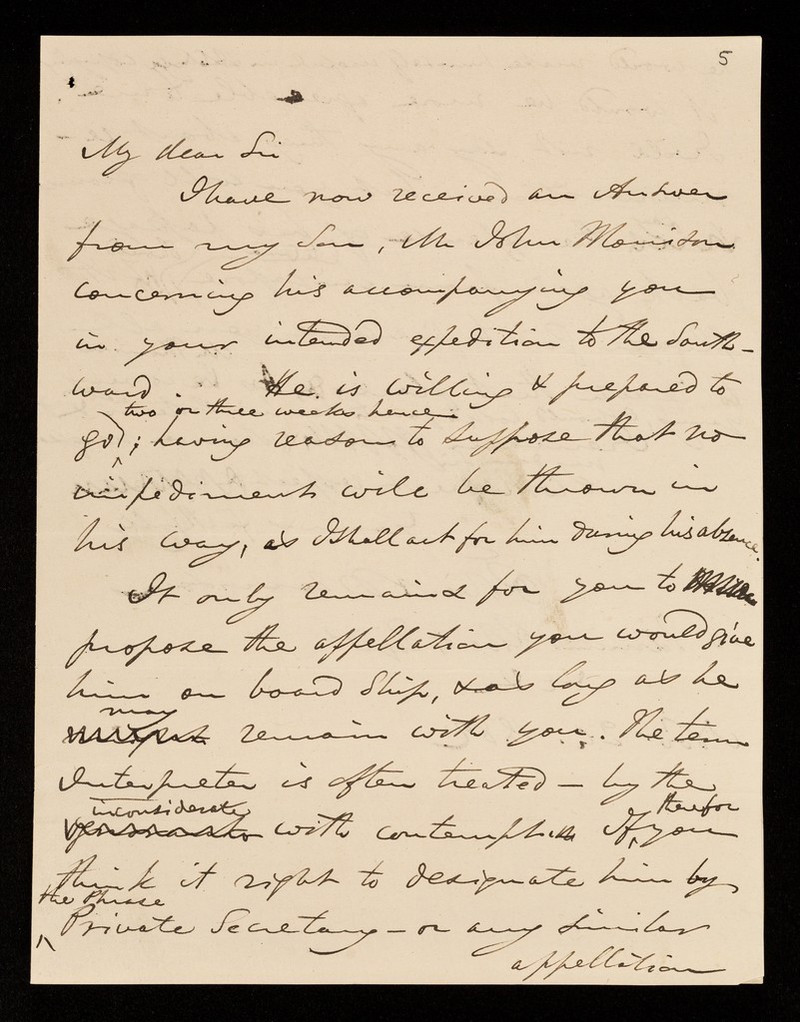 5
My dear Sir
I have now received an Answer
from my Son, Mr John Morrison
concerning his accompanying you
in your intended expedition to the South-
ward. He is willing & prepared to
two or three weeks hence
go; having reason to suppose that no
impediments will be thrown in
his way, as I shall act for him during his absence.
It only remains for you to
propose the appellation you would give
him on board Ship, & as long as he
may
might remain with you. The term
Interpreter is often treated - by the
inconsiderate therefor
with contempt. If, you
think it right to designate him by
the Phrase
Private Secretary - or any similar
appellation